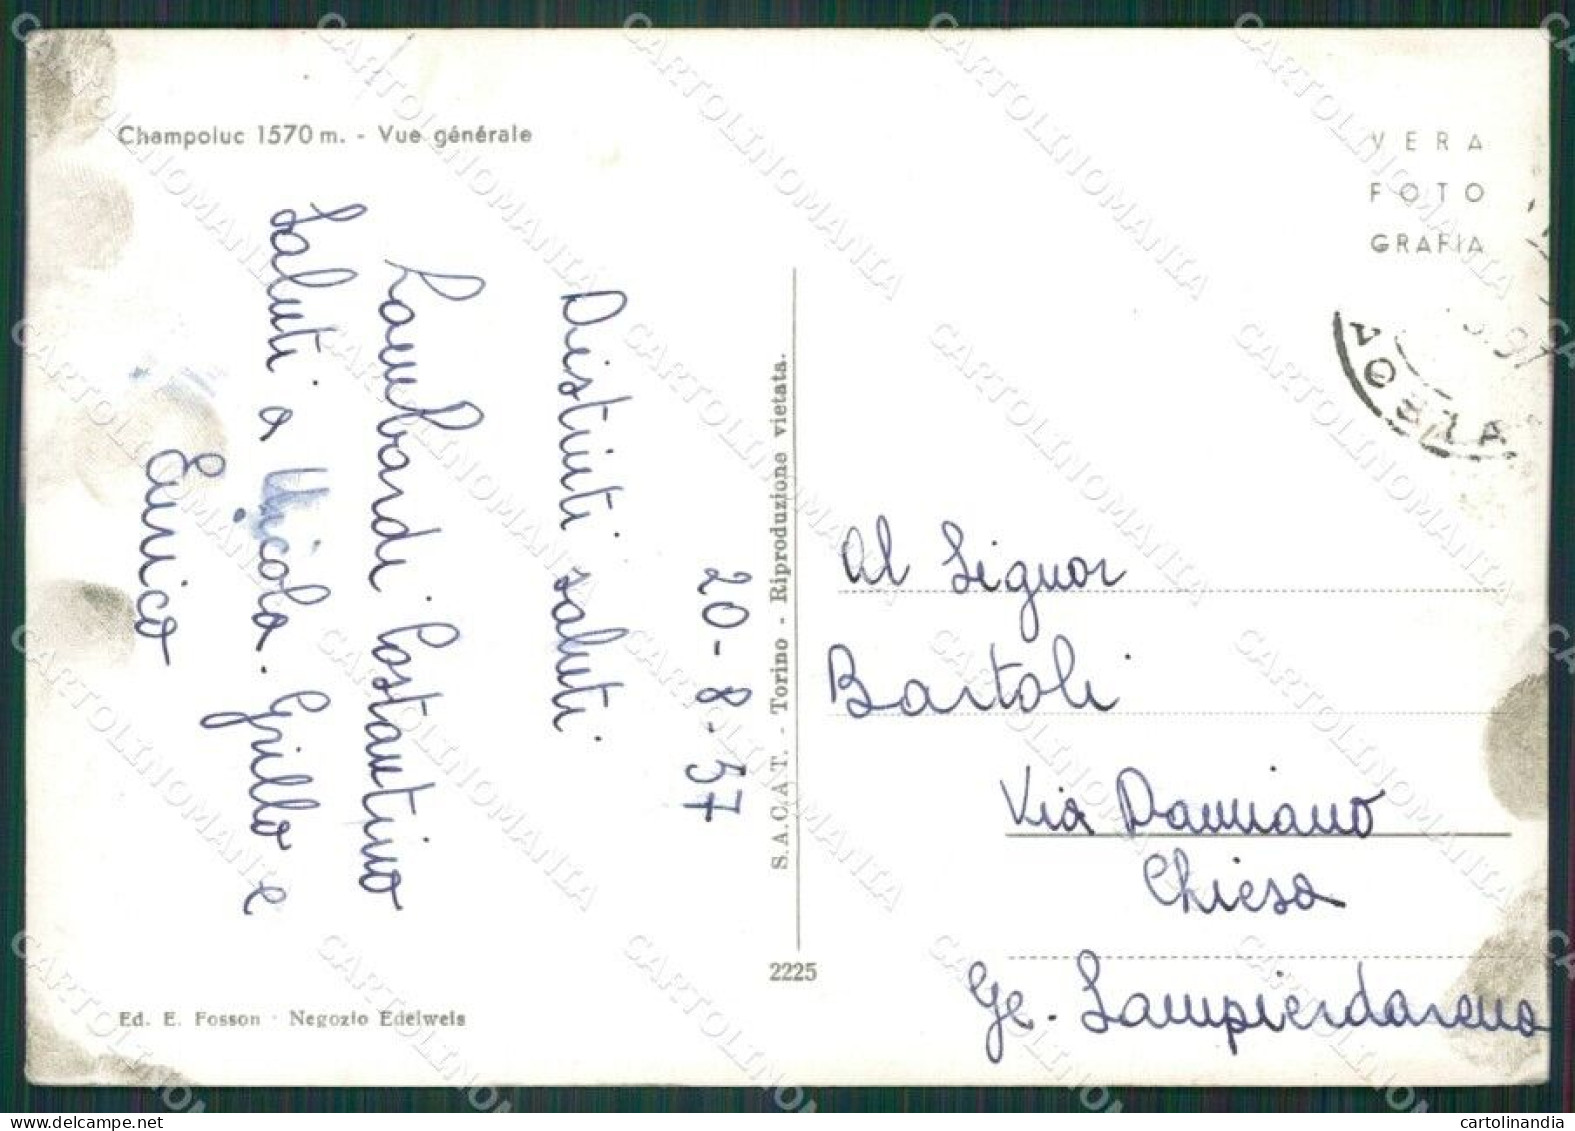 Champoluc 1570 m. - Vue générale
VERA
FOTO
GRAFIA
20-8-57
Distinti saluti
Lombardi Costantino
Saluti a Nicola. Grillo e
Enrico
S.A.C.A T. - Torino - Riproduzione vietata.
2225
Al Signor
Bartoli
Via Damiano
Chiesa
Ge. Sampierdarena
Ed. E. Fosson - Negozio Edelweis
CARTOLINOMANIA
cartolinandia